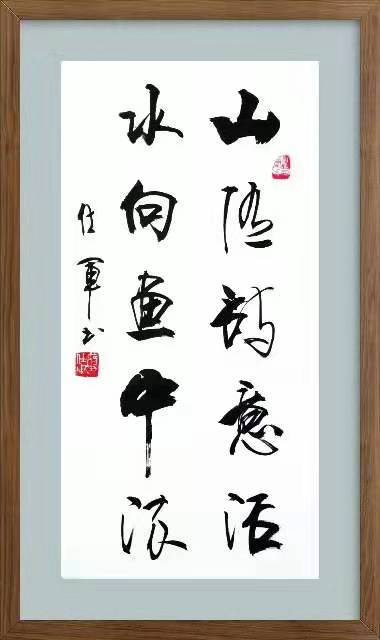 山随诗意活
水向画中流
仕军书